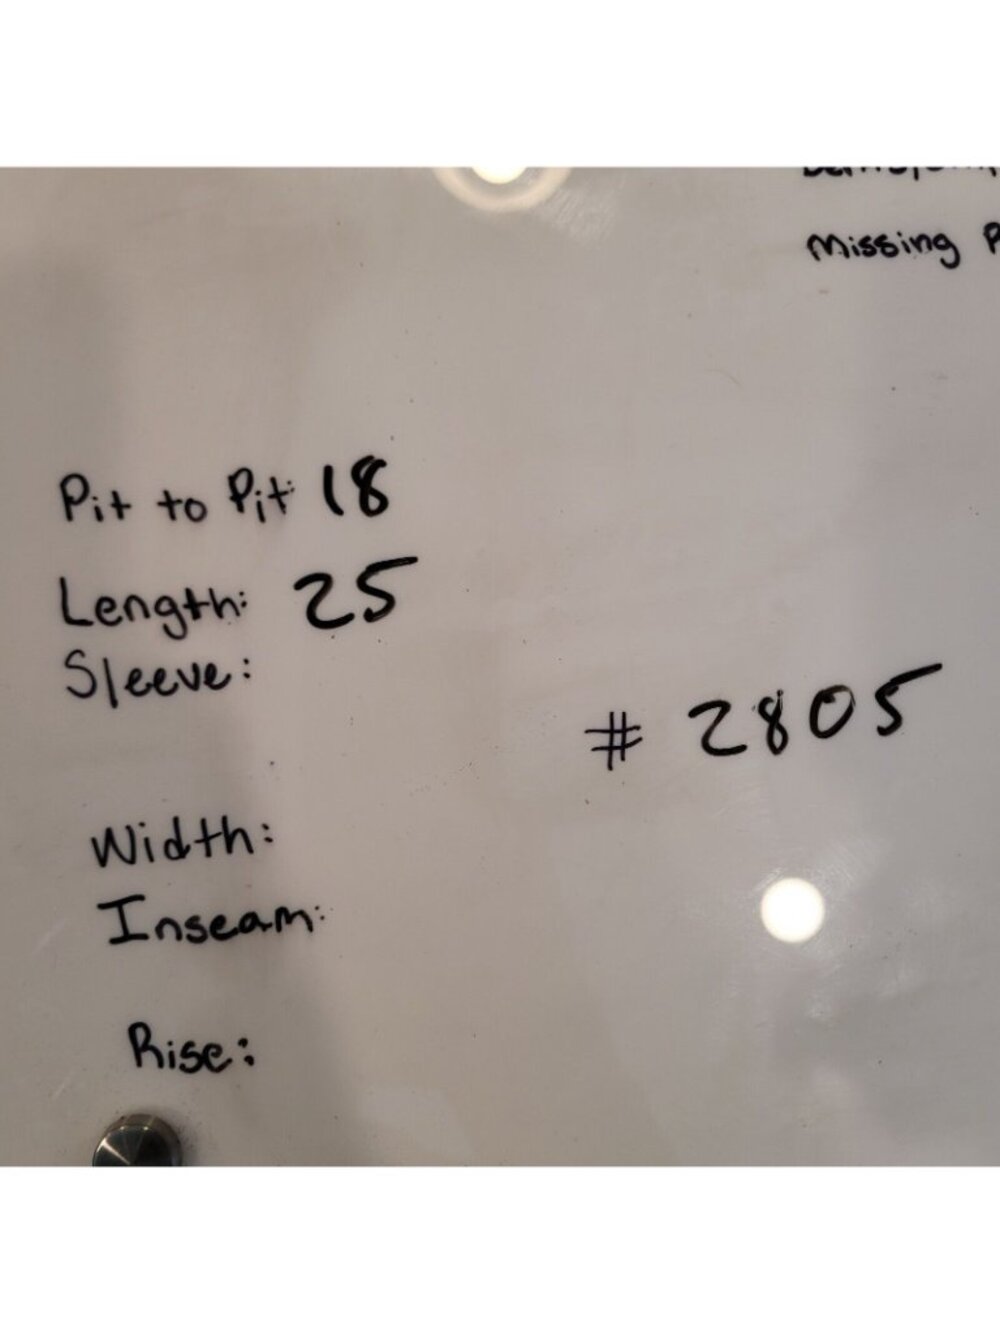 Missing
Pit to Pit 18
Length: 25
Sleeve:
# 2805
Width:
Inseam:
Rise: